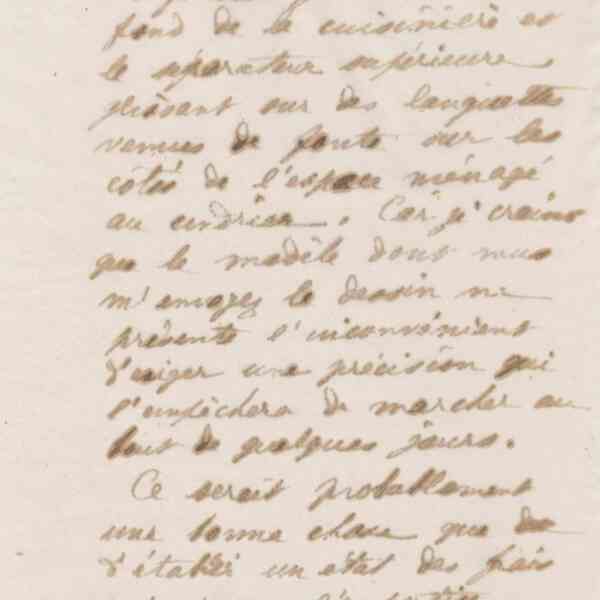 fond de la cuisinière et
le séparateur supérieure
glissant sur des languettes
venues de fonte sur les
côtés de l'espace ménagé
au cendrier. Car je crains
que le modèle dont vous
m'envoyez le dessin ne
présente l'inconvénient
d'exiger une précision qui
l'empêchera de marcher au
bout de quelques jours.
Ce serait probablement
une bonne chose que de
d'établir un état des frais